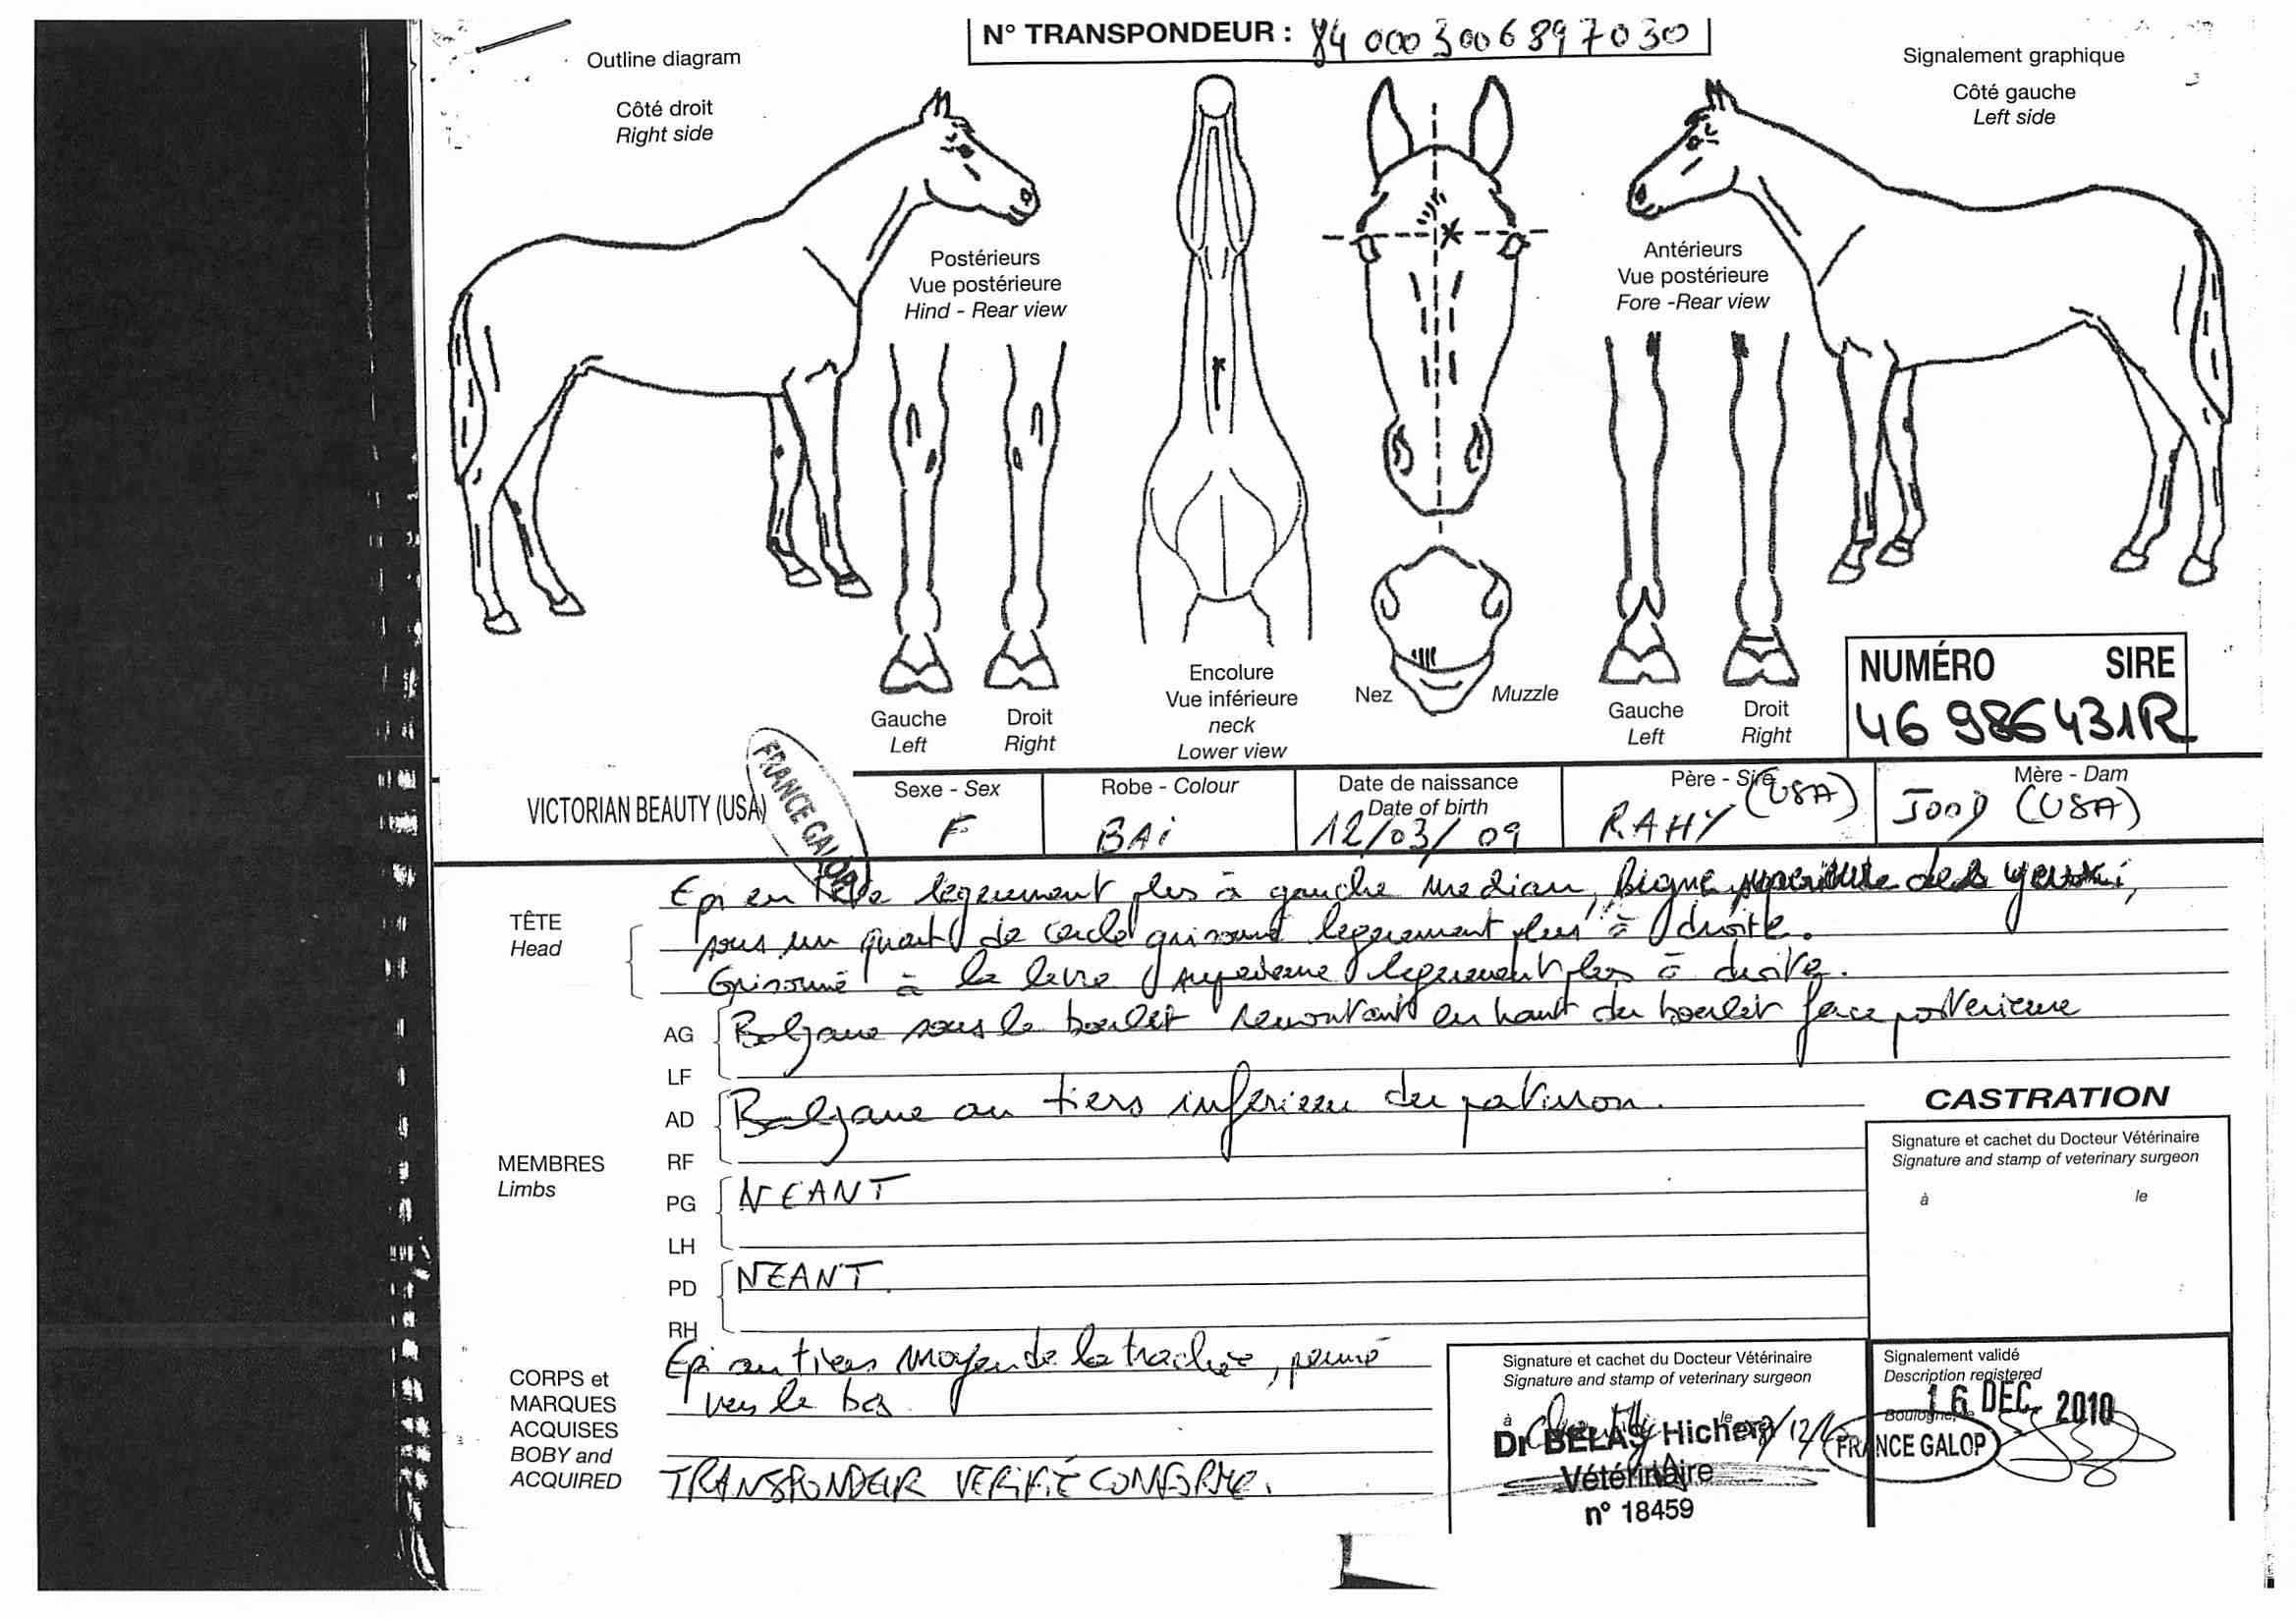 N° TRANSPONDEUR : 84 000 3006897030
Outline diagram
Côté droit
Right side
Signalement graphique
Côté gauche
Left side
Postérieurs
Vue postérieure
Hind - Rear view
Antérieurs
Vue postérieure
Fore -Rear view
Gauche
Left
Droit
Right
Encolure
Vue inférieure
neck
Lower view
Nez
Muzzle
Gauche
Left
Droit
Right
NUMÉRO SIRE
46 986431R
VICTORIAN BEAUTY (USA)
FRANCE GALOP
Sexe - Sex
F
Robe - Colour
BAi
Date de naissance
Date of birth
12/03/09
Père - Sire
RAHY (USA)
Mère - Dam
JOOD (USA)
TÊTE
Head
Epi en tête légèrement plus à gauche median, ligne des
sous un quart de cercle grisonné légèrement plus à droite.
Grisonné à la levre superieure legerement plus à droite.
AG
LF
Balzane sous le boulet remontant en haut du boulet face posterieure
MEMBRES
Limbs
AD
RF
Balzane au tiers inferieur du paturon.
PG
LH
NEANT
PD
RH
NEANT.
CORPS et
MARQUES
ACQUISES
BOBY and
ACQUIRED
Epi au tiers moyen de la trachée, penné
vers le bas
TRANSPONDEUR VERIFIÉ CONFORME.
CASTRATION
Signature et cachet du Docteur Vétérinaire
Signature and stamp of veterinary surgeon
à le
Signature et cachet du Docteur Vétérinaire
Signature and stamp of veterinary surgeon
à le
Dr BELAS Hichem
Vétérinaire
n° 18459
Signalement validé
Description registered
Boulogne, le
16 DEC. 2010
FRANCE GALOP